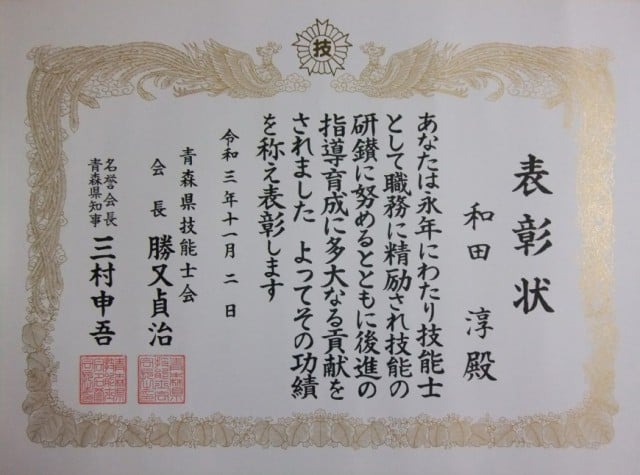 技
表彰状
和田 淳殿
あなたは永年にわたり技能士
として職務に精励され技能の
研鑽に努めるとともに後進の
指導育成に多大なる貢献を
されました よってその功績
を称え表彰します
令和三年十一月二日
青森県技能士会
会長 勝又貞治
名誉会長
青森県知事 三村申吾